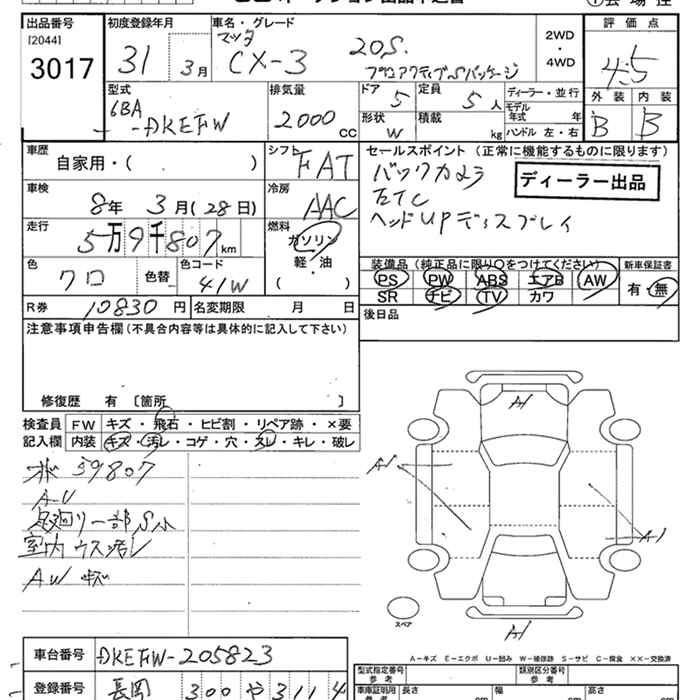 出品番号
[2044]
3017
初度登録年月
31 3月
車名・グレード
マツダ
CX-3 20S.
プロアクティブSパッケージ
2WD
・
4WD
評価点
4.5
外装 内装
B B
型式
6BA
-DKEFW
排気量
2000 cc
ドア 5
定員 5人
形状 W
積載 kg
ディーラー・並行
モデル年式 年
ハンドル 左・右
車歴
自家用・( )
シフト FAT
車検
8年 3月(28日)
冷房 AAC
走行
5万9千807km
燃料
ガソリン
軽・油
( )
色
クロ
色替
色コード
41W
R券 10830円
名変期限 月 日
セールスポイント(正常に機能するものに限ります)
バックカメラ
ETC
ヘッドUPディスプレイ
ディーラー出品
装備品(純正品に限り○をつけてください)
新車保証書
PS PW ABS エアB AW
SR ナビ TV カワ
有・無
後日品
注意事項申告欄(不具合内容等は具体的に記入して下さい)
修復歴 有〔箇所 〕
検査員
記入欄
FW キズ・飛石・ヒビ割・リペア跡・×要
内装 キズ・汚レ・コゲ・穴・スレ・キレ・破レ
59807
A-U
一部
室内 ウス汚レ
AW キズ
A1
A1
A1
A1
スペア
A－キズ E－エクボ U－凹み W－補修跡 S－サビ C－腐食 XX－交換済
車台番号 DKEFW-205823
登録番号 長岡 300 や 311 4
型式指定番号
参考
類別区分番号
参考
車庫証明用
長さ cm
幅 cm
高さ cm